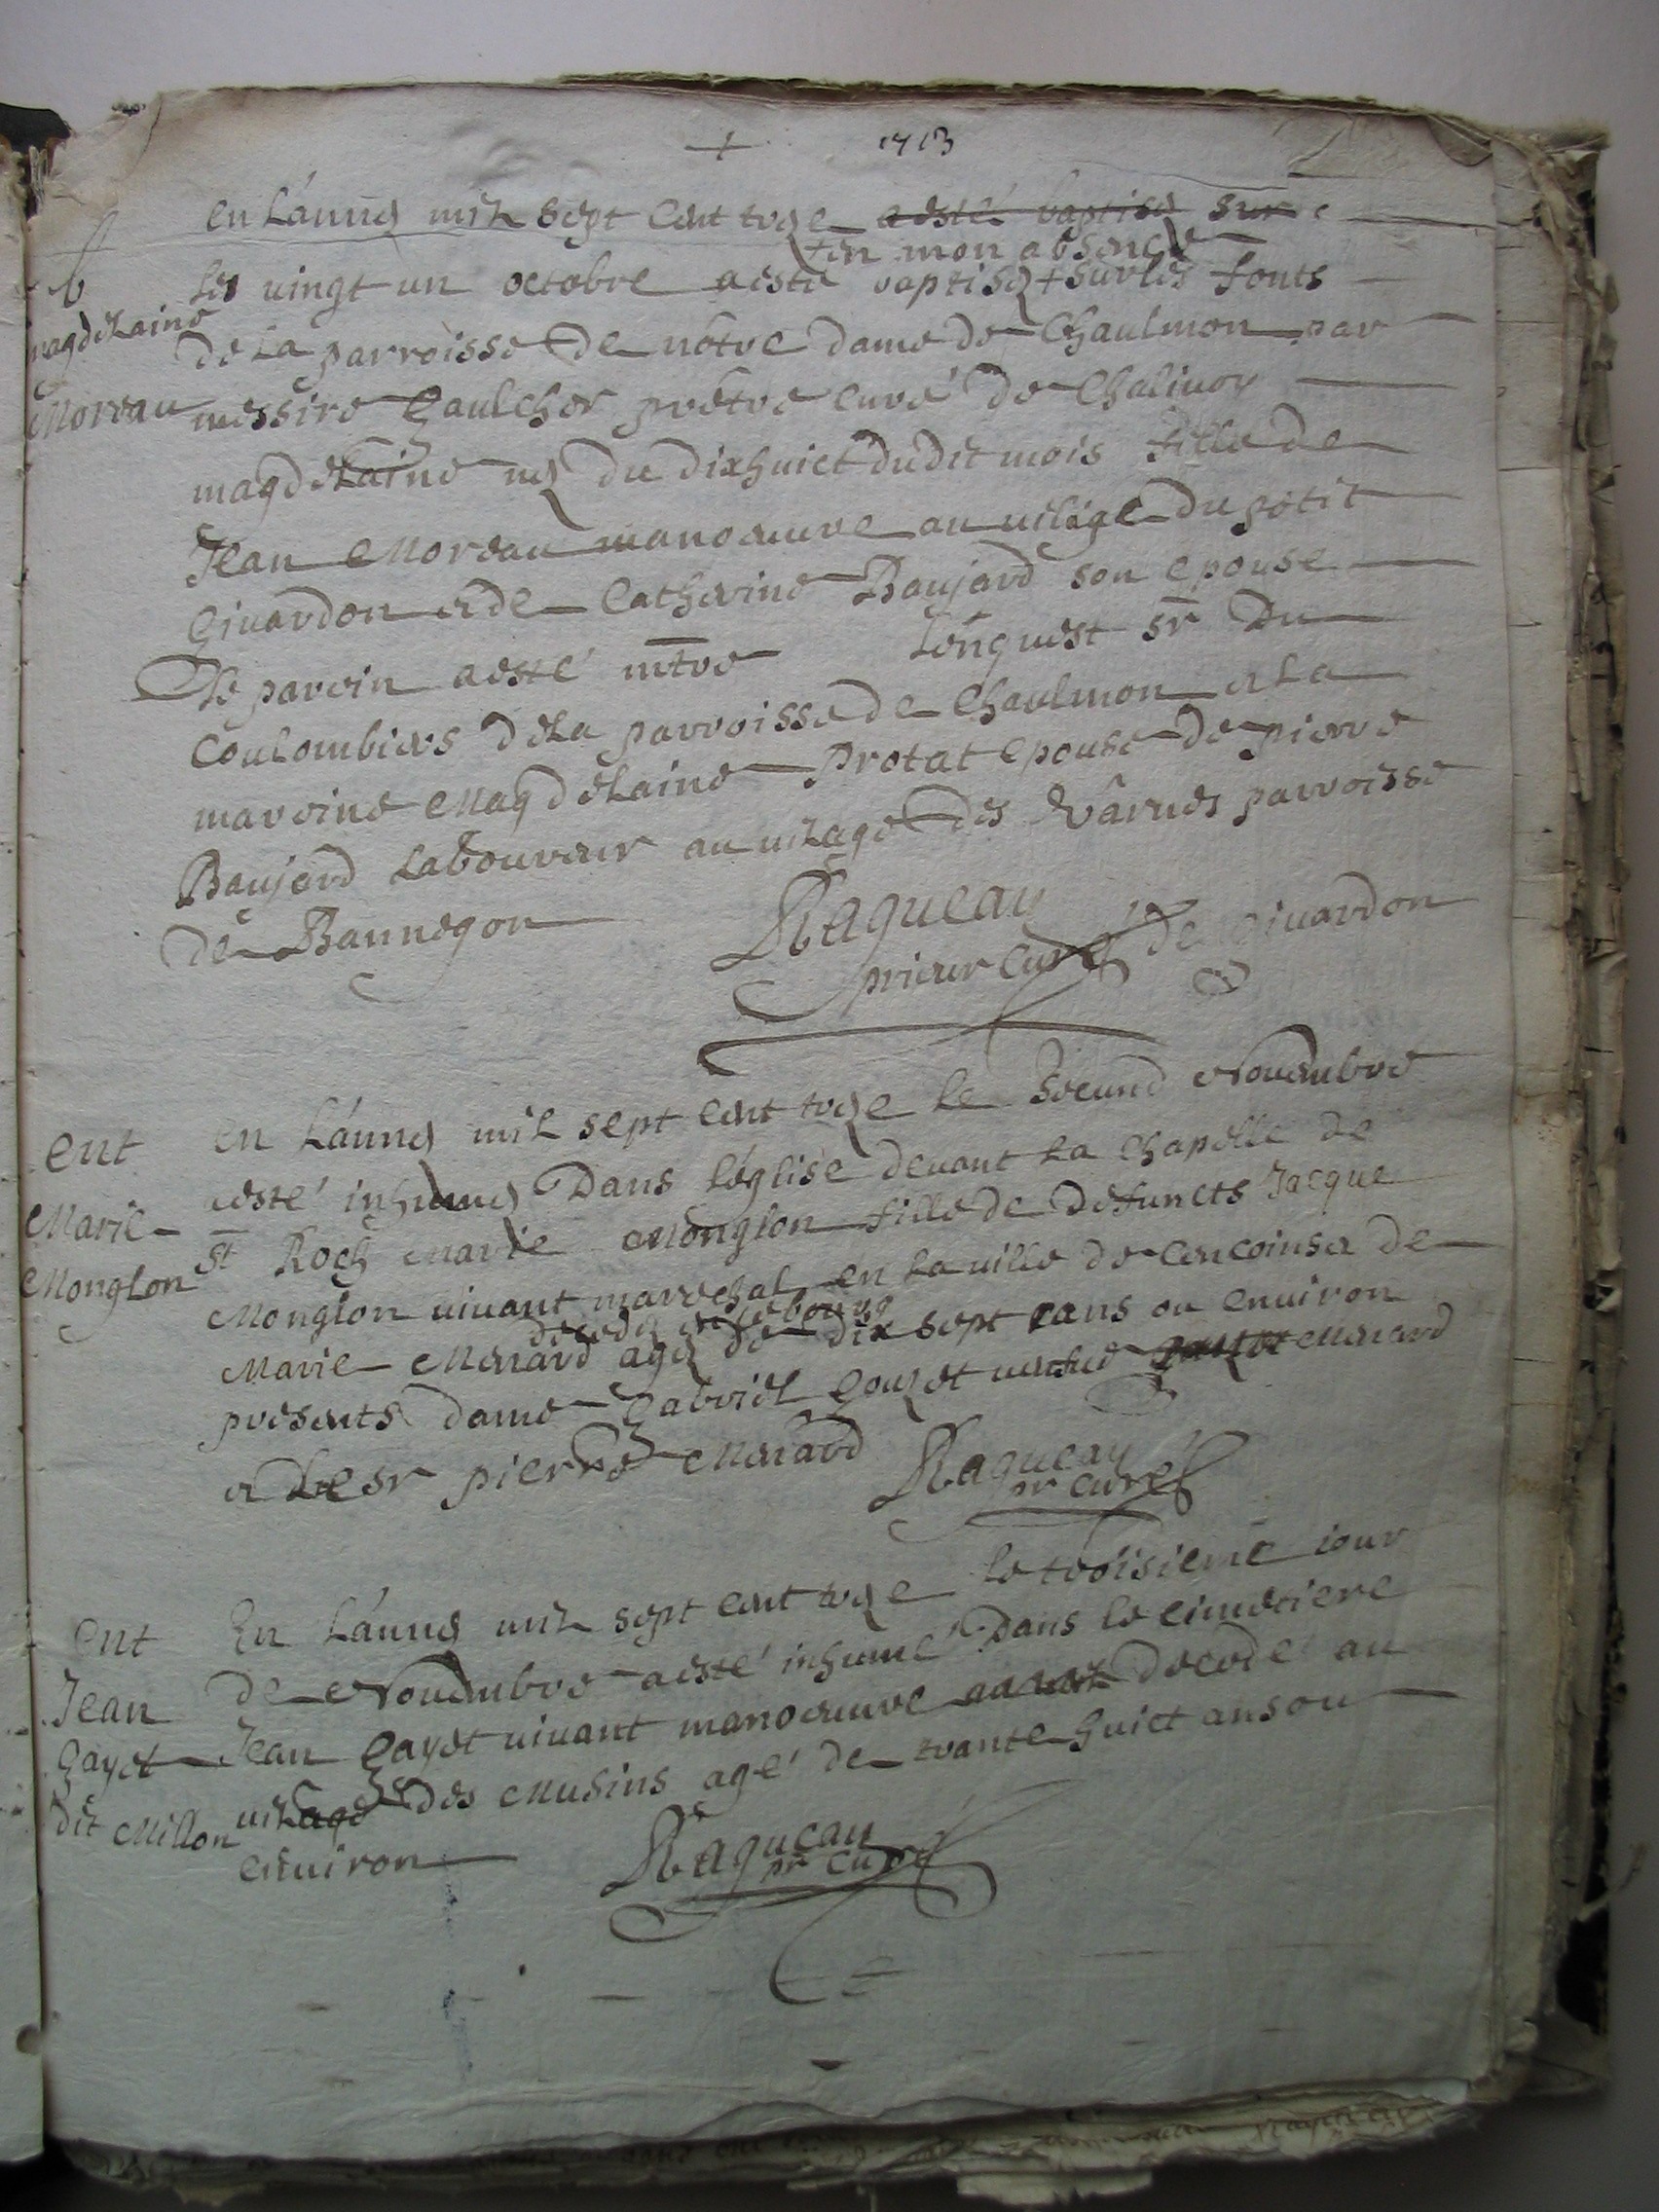 + 1713
en L'année mil sept cent treze a esté baptisé sur
+ en mon absence
Le vingt un octobre a esté baptisée + sur les fonts
b
magdelaine
Moreau
de La parroisse de nôtre dame de Chaulmon par
messire Gaulcher prêtre curé de Chalivoy
magdelaine née du dixhuict dudit mois fille de
Jean Moreau manoeuvre au vilage du petit
Givardon et de Catherine Baujard son epouse
Le parein a esté mtre Lenguest sr Du
Coulombiers de La parroisse de Chaulmon et La
mareine Magdelaine Protat epouse de pierre
Baujard Laboureur au vilage des Varnes parroisse
de Bannegon
Ragueau
prieur curé de Givardon
ent
Marie
Monglon
en L'année mil sept cent treze le second Novembre
a esté inhumée Dans l'église devant La chapelle de
st Roch Marie Monglon fille de defuncts Jacque
Monglon vivant marechal en La ville de Cencoins et de
decedée en ce bourg
Marie Merard agée de dix sept ans ou environ
presents dame Gabriel Gouzet veufve Merard
et Le sr pierre Merard
Ragueau
pr curé
ent
Jean
Gayet
dit Millon
En L'année mil sept cent treze le troisieme iour
de Novembre a esté inhumé Dans le cimetiere
Jean Gayet vivant manoeuvre decedé au
vilage des Musins agé de trante huict ans ou
environ
Ragueau
pr curé